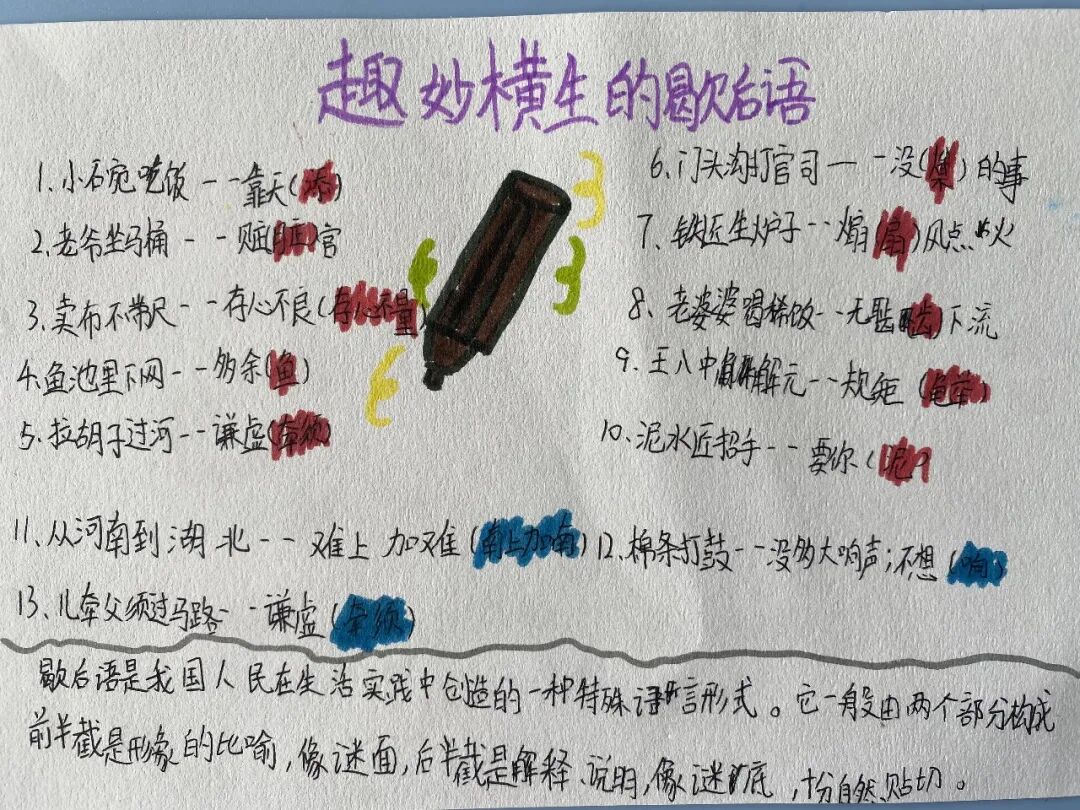 趣妙横生的歇后语
1.小石宛吃饭---靠天(添)
2.老爷坐马桶---赃(脏)官
3.卖布不带尺---存心不良(存心不量)
4.鱼池里下网---多余(鱼)
5.拉胡子过河--谦虚(牵须)
6.门头沟打官司---没(煤)的事
7.铁匠生炉子--煽(扇)风点火
8.老婆婆喝稀饭--无耻(齿)下流
9.王八中解元--规矩(龟举)
10.泥水匠招手--要你(泥)
11.从河南到湖北---难上加难(南上加南)12.棉条打鼓--没多大响声;不想(响)
13.儿牵父须过马路--谦虚(牵须)
歇后语是我国人民在生活实践中创造的一种特殊语言形式。它一般由两个部分构成
前半截是形象的比喻,像谜面,后半截是解释、说明,像谜底,十份自然贴切。